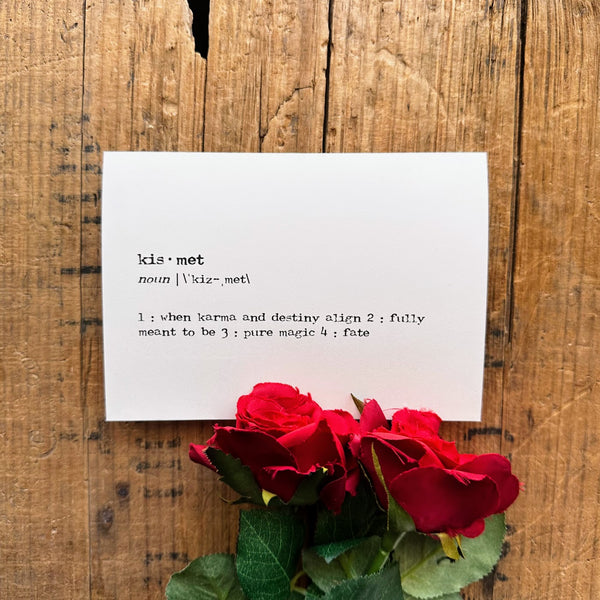 kis·met
noun | \ˈkiz-ˌmet\
1 : when karma and destiny align 2 : fully
meant to be 3 : pure magic 4 : fate